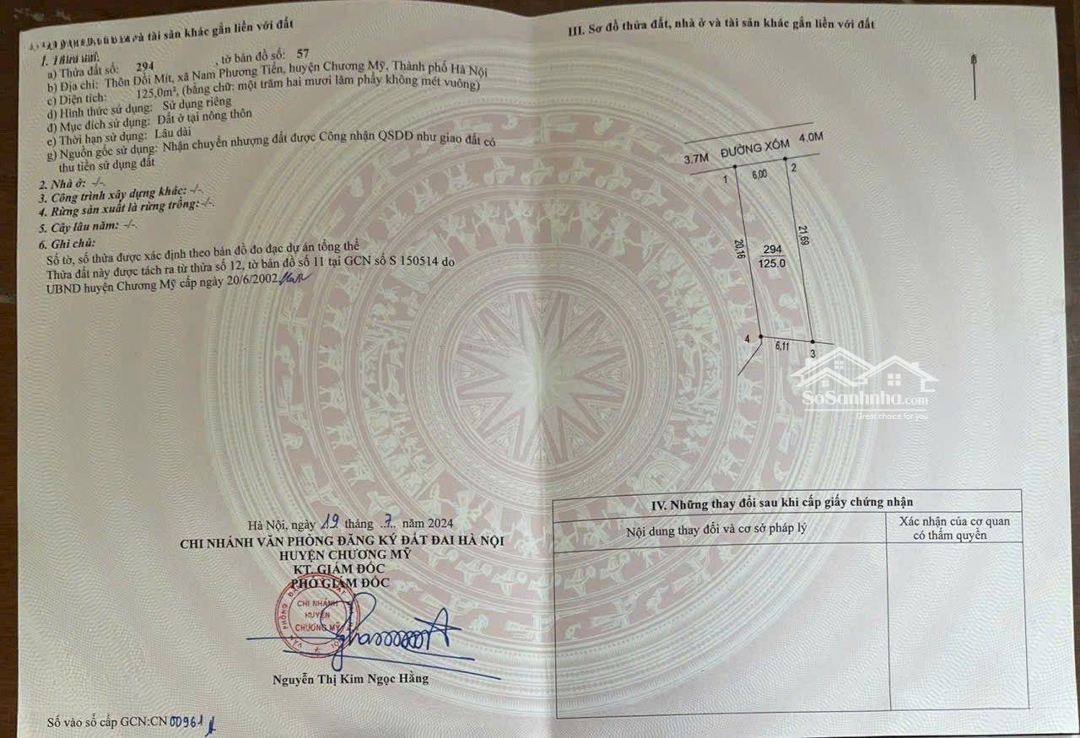 và tài sản khác gắn liền với đất
a) Thửa đất số: 294 , tờ bản đồ số: 57
b) Địa chỉ: Thôn Đồi Mít, xã Nam Phương Tiến, huyện Chương Mỹ, Thành phố Hà Nội
c) Diện tích: 125,0m², (bằng chữ: một trăm hai mươi lăm phẩy không mét vuông)
d) Hình thức sử dụng: Sử dụng riêng
đ) Mục đích sử dụng: Đất ở tại nông thôn
e) Thời hạn sử dụng: Lâu dài
g) Nguồn gốc sử dụng: Nhận chuyển nhượng đất được Công nhận QSDĐ như giao đất có
thu tiền sử dụng đất
2. Nhà ở: -/-.
3. Công trình xây dựng khác: -/-.
4. Rừng sản xuất là rừng trồng: -/-.
5. Cây lâu năm: -/-.
6. Ghi chú:
Số tờ, số thửa được xác định theo bản đồ đo đạc dự án tổng thể
Thửa đất này được tách ra từ thửa số 12, tờ bản đồ số 11 tại GCN số S 150514 do
UBND huyện Chương Mỹ cấp ngày 20/6/2002
Hà Nội, ngày 19 tháng 7 năm 2024
CHI NHÁNH VĂN PHÒNG ĐĂNG KÝ ĐẤT ĐAI HÀ NỘI
HUYỆN CHƯƠNG MỸ
KT. GIÁM ĐỐC
PHÓ GIÁM ĐỐC
CHI NHÁNH
HUYỆN
CHƯƠNG MỸ
Nguyễn Thị Kim Ngọc Hằng
Số vào sổ cấp GCN:CN 00961
III. Sơ đồ thửa đất, nhà ở và tài sản khác gắn liền với đất
B
3.7M ĐƯỜNG XÓM 4.0M
1 6,00 2
20,16
21,69
294
125.0
4 6,11 3
SoSanhnha.com
Great choice for you
IV. Những thay đổi sau khi cấp giấy chứng nhận
Nội dung thay đổi và cơ sở pháp lý
Xác nhận của cơ quan
có thẩm quyền